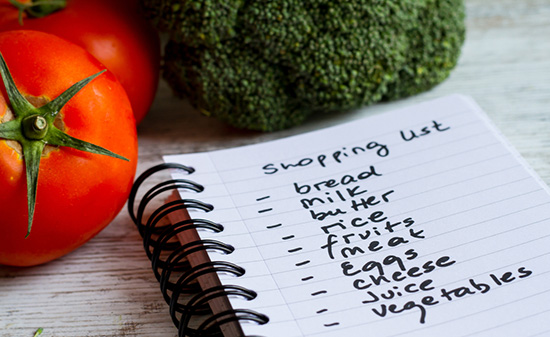 Shopping list
- bread
- milk
- butter
- rice
- fruits
- meat
- Eggs
- cheese
- juice
- vegetables